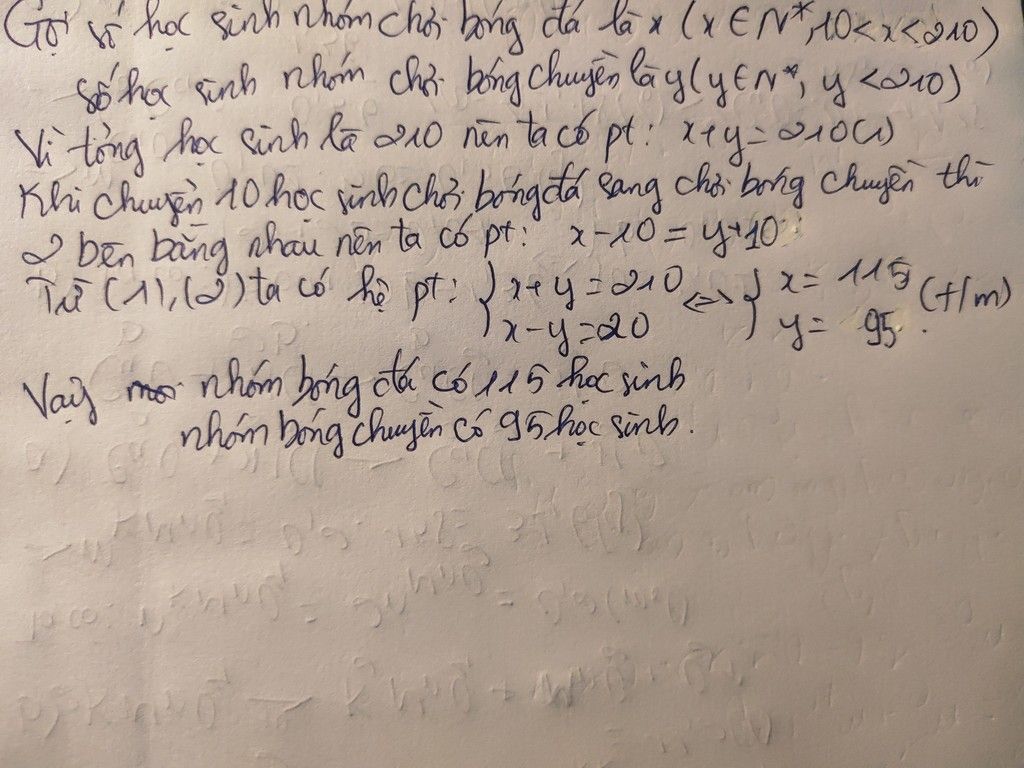 Gọi số học sinh nhóm chơi bóng đá là x (x ∈ N*, 10 < x < 210)
số học sinh nhóm chơi bóng chuyền là y (y ∈ N*, y < 210)
Vì tổng học sinh là 210 nên ta có pt: x + y = 210 (1)
Khi chuyển 10 học sinh chơi bóng đá sang chơi bóng chuyền thì
2 bên bằng nhau nên ta có pt: x - 10 = y + 10
Từ (1), (2) ta có hệ pt: { x + y = 210 <=> { x = 115 (t/m)
x - y = 20 y = 95
Vậy nhóm bóng đá có 115 học sinh
nhóm bóng chuyền có 95 học sinh.